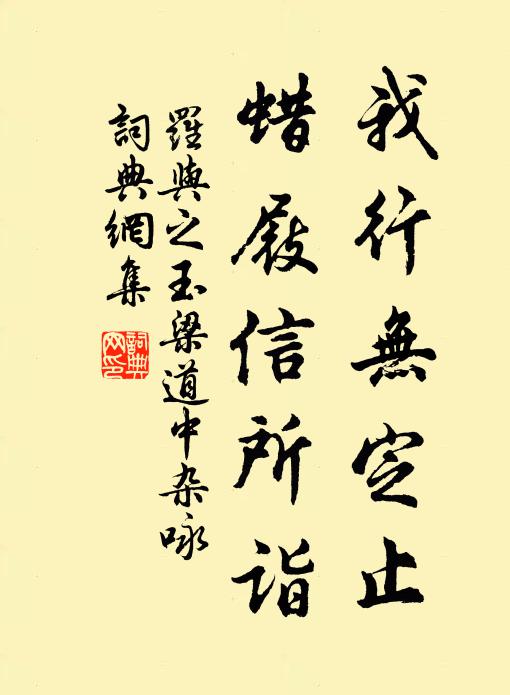 我行無定止
蜡屐信所詣
羅與之玉梁道中杂咏
詞典網集
詞典
网印